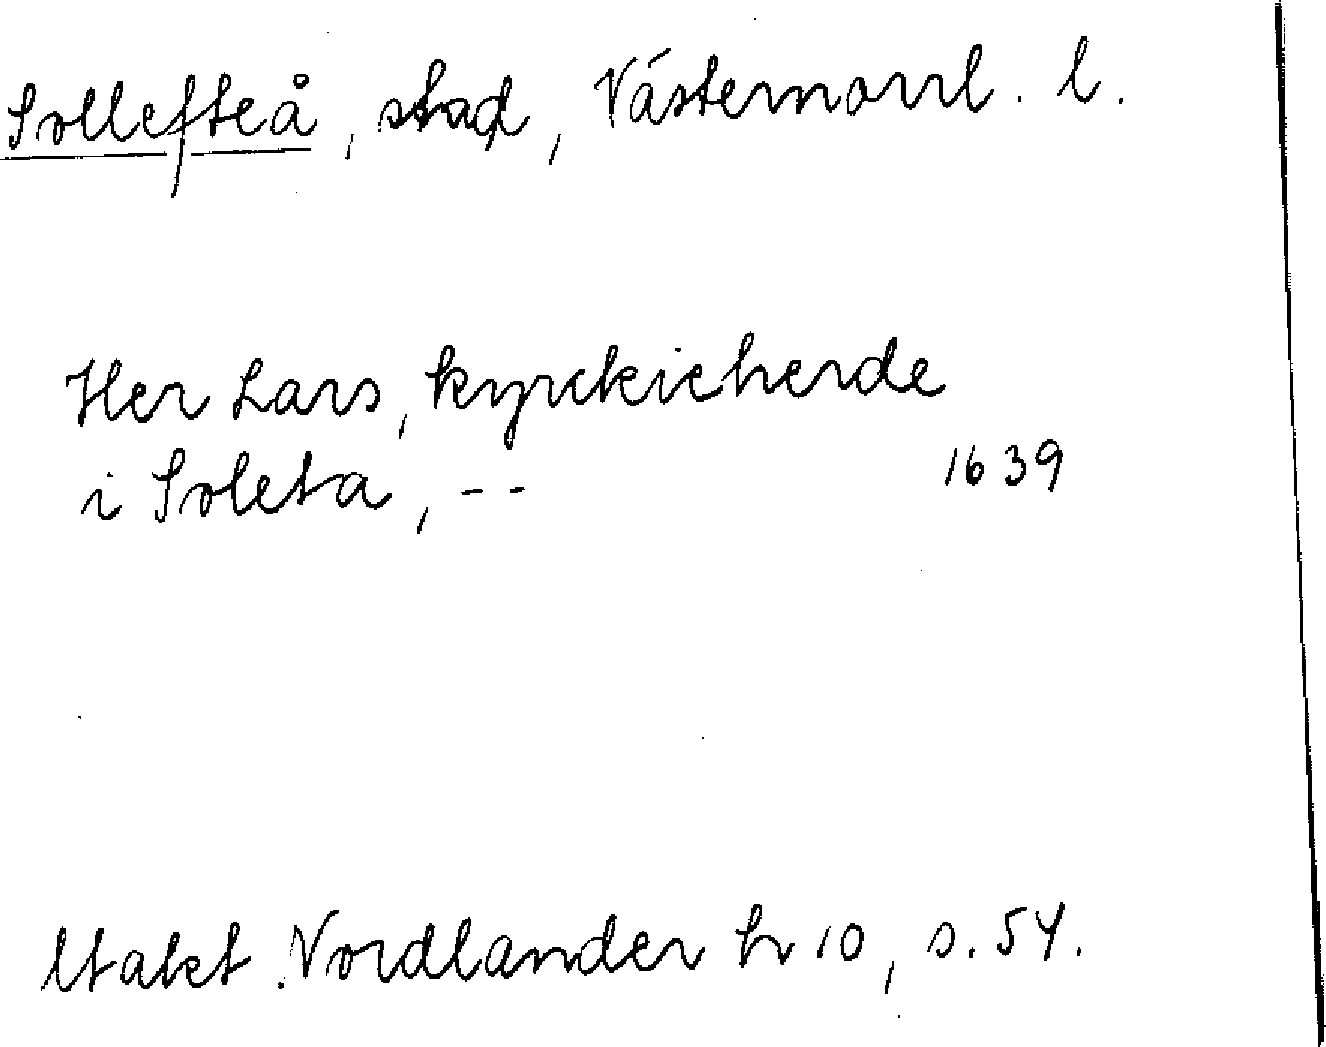 Sollefteå, stad, Västernorrl. l.
Her Lars, kyrckieherde
i Soleta, -- 1639
Utakt. Nordlander h 10, s. 54.